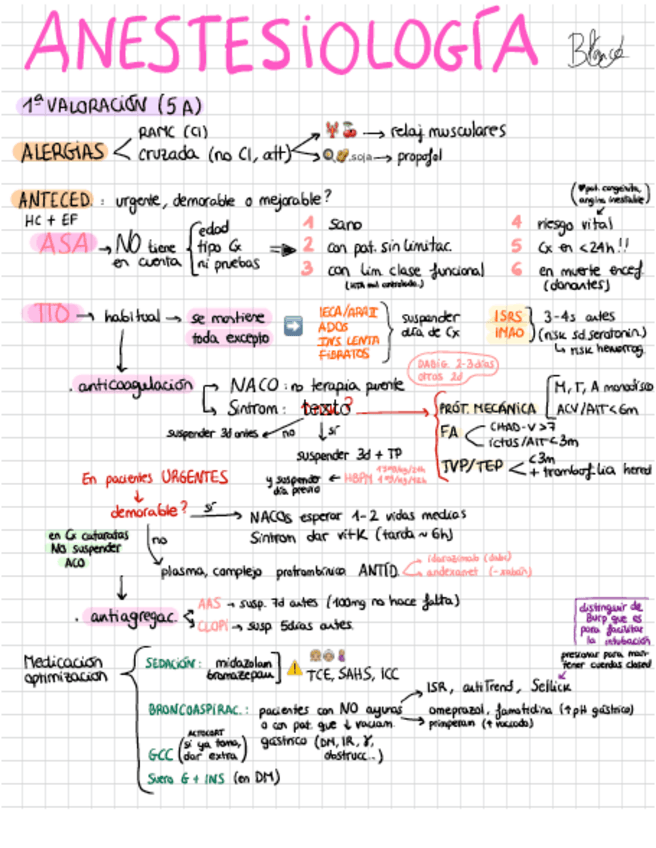 ANESTESIOLOGÍA
1ª VALORACIÓN (5 A)
ALERGIAS
RAMC (CI)
cruzada (no CI, att)
→ relaj. musculares
soja → propofol
ANTECED. : urgente, demorable o mejorable?
HC + EF
(♥pat. congénita, angina inestable)
ASA → NO tiene en cuenta
edad
tipo Cx
ni pruebas
1 sano
2 con pat. sin limitac.
3 con lim clase funcional
4 riesgo vital
5 Cx en <24h!!
6 en muerte encef.
(donantes)
TTO → habitual → se mantiene
toda excepto
IECA/ARAII
ADOS
INS LENTA
FIBRATOS
suspender
día de Cx
ISRS
IMAO
3-4s antes
(risk sd. serotonin.)
↳ risk hemorrag.
DABIG. 2-3 días
otros 2d
. anticoagulación
→ NACO : no terapia puente
↳ Sintrom : texto?
suspender 3d antes ← no
↓ sí
suspender 3d + TP
y suspender
día previo
← HBPM
PRÓT. MECÁNICA
M, T, A monodisco
ACV/AIT<6m
FA
CHAD-V>7
ictus/AIT<3m
TVP/TEP
<3m
+ tromboflia hered
En pacientes URGENTES
demorable? sí → NACOs esperar 1-2 vidas medias
Sintrom dar vit K (tarda ~ 6h)
en Cx cataratas
No suspender
ACO
no
plasma, complejo protrombínico ANTÍD.
idarucizumab (dabi)
andexanet (-xabán)
. antiagregac.
AAS → susp. 7d antes (100mg no hace falta)
CLOPI → susp 5días antes.
distinguir de
Burp que es
para facilitar
la intubación
presionar para man-
tener cuerdas closed
Medicación
optimización
SEDACIÓN : midazolam
bromazepam
TCE, SAHS, ICC
BRONCOASPIRAC. : pacientes con NO ayunas
o con pat. que ↓ vaciam.
gástrico (DM, IR,
obstrucc..)
ISR, antiTrend, Sellick
omeprazol, famotidina (↑pH gástrico)
primperan (↑ vaciado)
GCC
ACTOCORT
(si ya toma,
dar extra)
Suero G + INS (en DM)